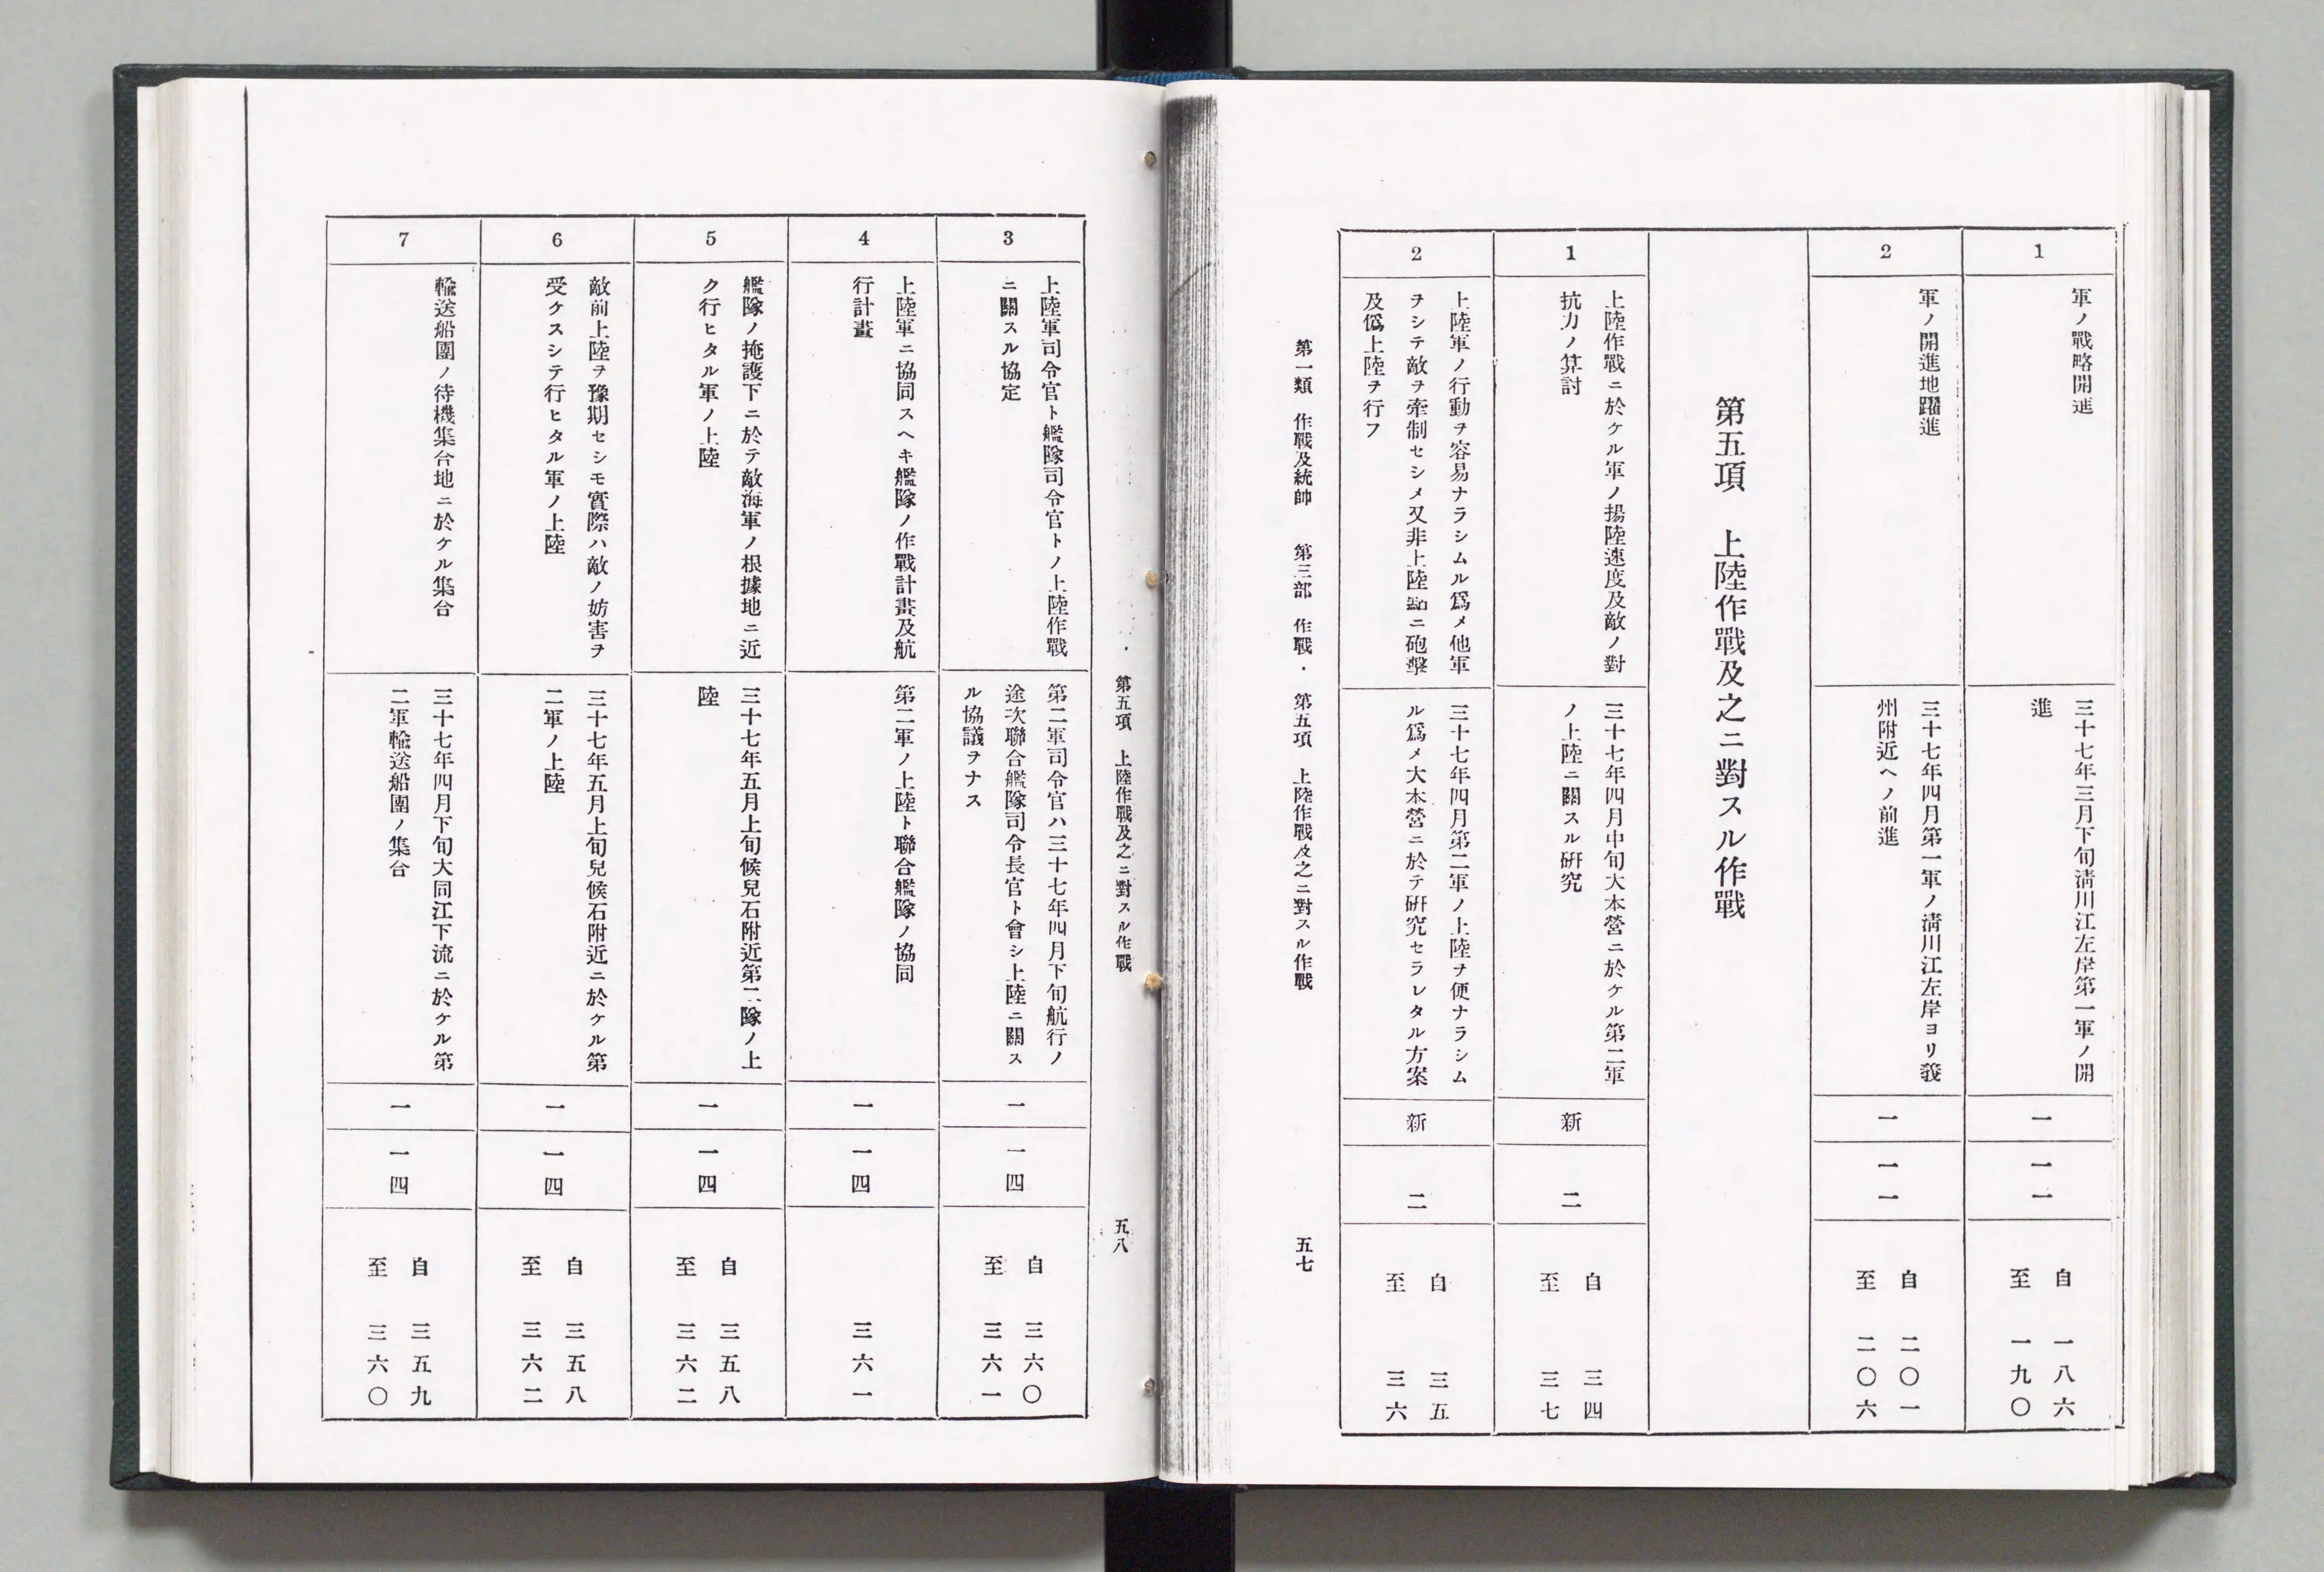 1
軍ノ戰略開進
三十七年三月下旬淸川江左岸第一軍ノ開
進
一
一一
自 一八六
至 一九〇
2
軍ノ開進地躍進
三十七年四月第一軍ノ淸川江左岸ヨリ義
州附近ヘノ前進
一
一一
自 二〇一
至 二〇六
第五項 上陸作戰及之ニ對スル作戰
1
上陸作戰ニ於ケル軍ノ揚陸速度及敵ノ對
抗力ノ算討
三十七年四月中旬大本營ニ於ケル第二軍
ノ上陸ニ關スル硏究
新
二
自 三四
至 三七
2
上陸軍ノ行動ヲ容易ナラシムル爲メ他軍
ヲシテ敵ヲ牽制セシメ又非上陸點ニ砲擊
及僞上陸ヲ行フ
三十七年四月第二軍ノ上陸ヲ便ナラシム
ル爲メ大本營ニ於テ硏究セラレタル方案
新
二
自 三五
至 三六
第一類 作戰及統帥 第三部 作戰・第五項 上陸作戰及之ニ對スル作戰
五七
第五項 上陸作戰及之ニ對スル作戰
五八
3
上陸軍司令官ト艦隊司令官トノ上陸作戰
ニ關スル協定
第二軍司令官ハ三十七年四月下旬航行ノ
途次聯合艦隊司令長官ト會シ上陸ニ關ス
ル協議ヲナス
一
一四
自 三六〇
至 三六一
4
上陸軍ニ協同スヘキ艦隊ノ作戰計畫及航
行計畫
第二軍ノ上陸ト聯合艦隊ノ協同
一
一四
三六一
5
艦隊ノ掩護下ニ於テ敵海軍ノ根據地ニ近
ク行ヒタル軍ノ上陸
三十七年五月上旬候兒石附近第二隊ノ上
陸
一
一四
自 三五八
至 三六二
6
敵前上陸ヲ豫期セシモ實際ハ敵ノ妨害ヲ
受ケスシテ行ヒタル軍ノ上陸
三十七年五月上旬兒候石附近ニ於ケル第
二軍ノ上陸
一
一四
自 三五八
至 三六二
7
輸送船團ノ待機集合地ニ於ケル集合
三十七年四月下旬大同江下流ニ於ケル第
二軍輸送船團ノ集合
一
一四
自 三五九
至 三六〇